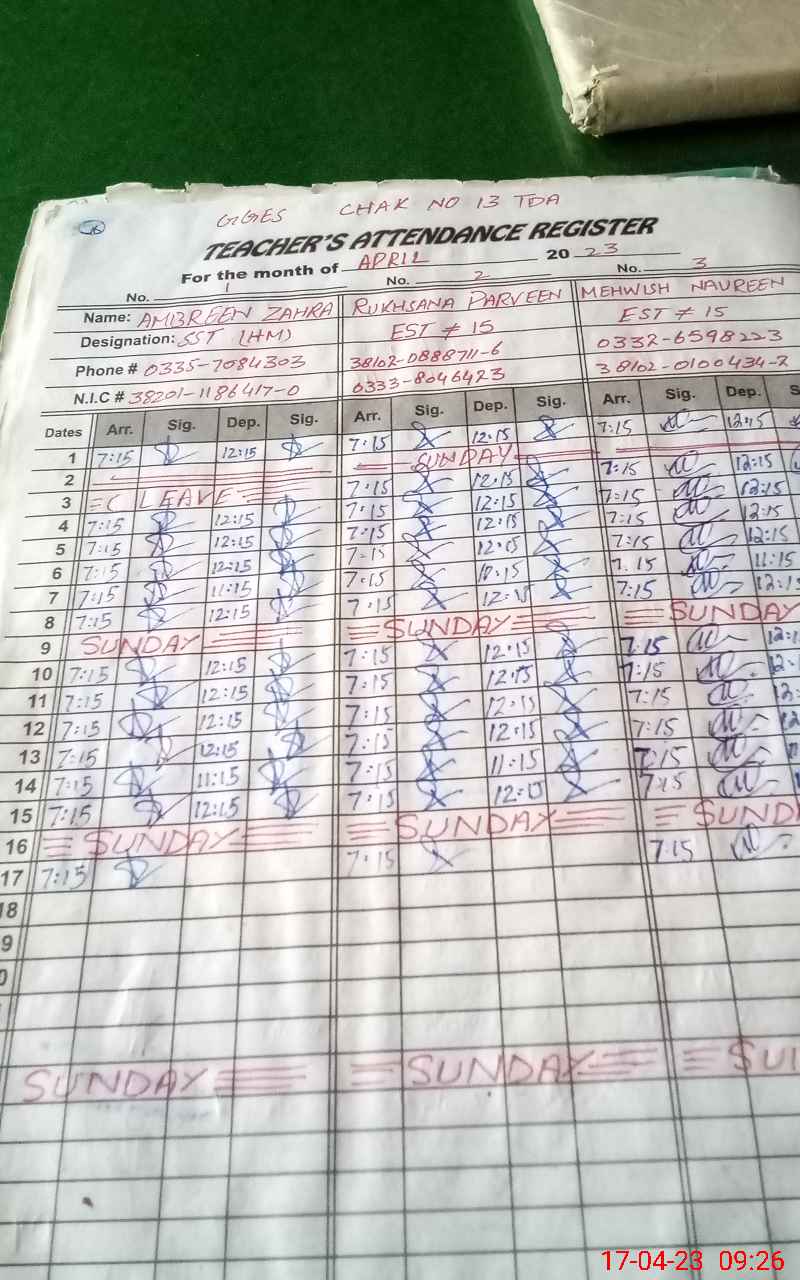 16
GGES CHAK NO 13 TDA
TEACHER'S ATTENDANCE REGISTER
For the month of APRIL 2023
No. 1 No. 2 No. 3
Name: AMBREEN ZAHRA RUKHSANA PARVEEN MEHWISH NAUREEN
Designation: SST (HM) EST # 15 EST # 15
Phone # 0335-7084303 38102-0888711-6 0332-6598223
N.I.C # 38201-1186417-0 0333-8046423 38102-0100434-2
Dates Arr. Sig. Dep. Sig. Arr. Sig. Dep. Sig. Arr. Sig. Dep. S
1 7:15 12:15 7:15 12:15 7:15 12:15
2 SUNDAY
3 C LEAVE 7:15 12:15 7:15 12:15
4 7:15 12:15 7:15 12:15 7:15 12:15
5 7:15 12:15 7:15 12:15 7:15 12:15
6 7:15 12:15 7:15 12:15 7:15 12:15
7 7:15 11:15 7:15 7:15 11:15
8 7:15 12:15 7:15 12:15 7:15 12:15
9 SUNDAY SUNDAY SUNDAY
10 7:15 12:15 7:15 12:15 7:15 12:1
11 7:15 12:15 7:15 12:15 7:15 12:
12 7:15 12:15 7:15 12:15 7:15 12:
13 7:15 12:15 7:15 12:15 7:15 12:
14 7:15 11:15 7:15 11:15 7:15
15 7:15 12:15 7:15 12:15 7:15
16 SUNDAY SUNDAY SUND
17 7:15 7:15 7:15
18
9
0
SUNDAY SUNDAY SU
17-04-23 09:26